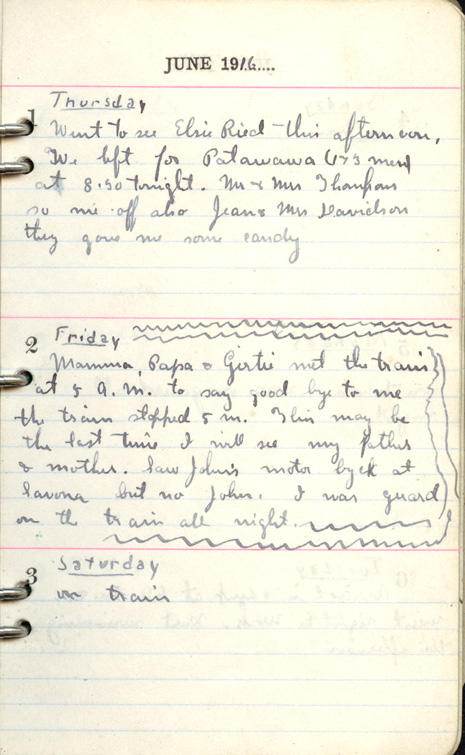 JUNE 1916....
1 Thursday
Went to see Elsie Ried this afternoon,
We left for Patawawa (173 men)
at 8.30 tonight. Mr & Mrs Thompson
so me off also Jean & Mrs Davidson
they gave me some candy
2 Friday
Mamma, Papa & Gertie met the train
at 5 A.M. to say good bye to me
the train stopped 5 m. This may be
the last time I will see my father
& mother. Saw John's motor byck at
Savona but no John. I was guard
on the train all night.
3 Saturday
on train